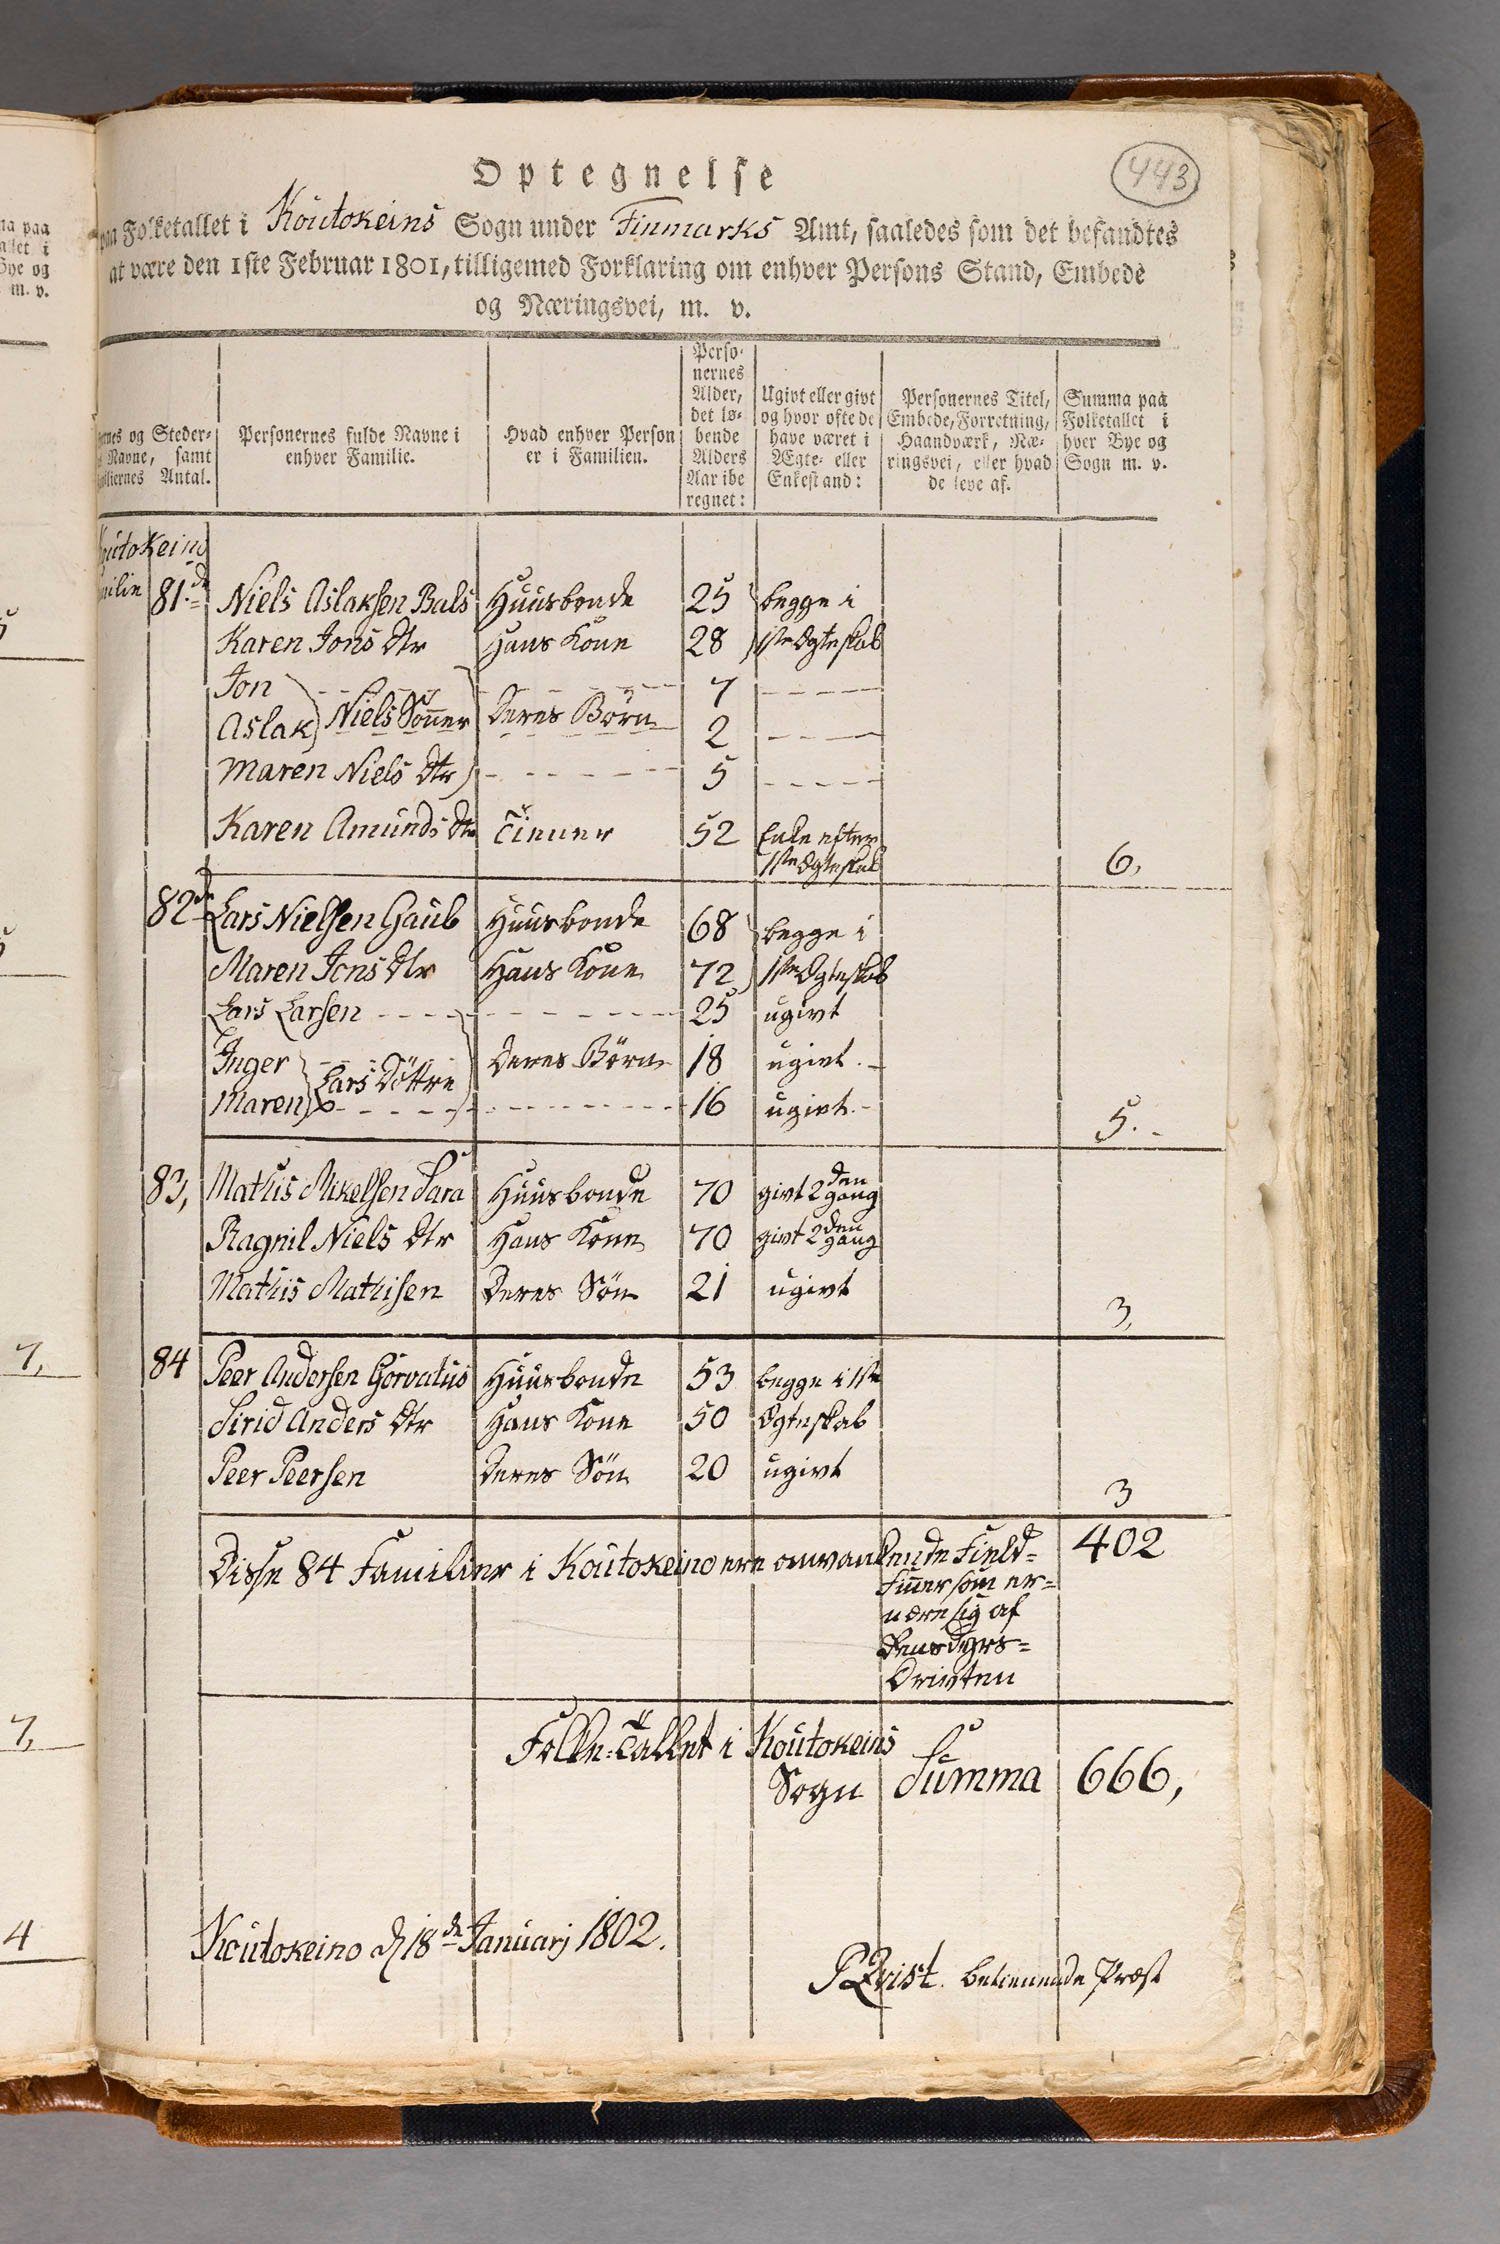 443
Optegnelse
paa Folketallet i Koutokeins Sogn under Finmarks Amt, saaledes som det befandtes
at være den 1ste Februar 1801, tilligemed Forklaring om enhver Persons Stand, Embede
og Næringsvei, m. v.
og Steder-
Navne, samt
Antal.
Personernes fulde Navne i
enhver Familie.
Hvad enhver Person
er i Familien.
Perso-
nernes
Alder,
det lø-
bende
Alders
Aar ibe
regnet:
Ugivt eller givt
og hvor ofte de
have været i
Ægte- eller
Enkestand:
Personernes Titel,
Embede, Forretning,
Haandværk, Næ-
ringsvei, eller hvad
de leve af.
Summa paa
Folketallet i
hver Bye og
Sogn m. v.
Koutokeino
81de Niels Aslaksen Bals Huusbonde 25 begge i
Karen Jons Dtr Hans Kone 28 1ste Ægteskab
Jon 7
Aslak Niels Sønner Deres Børn 2
Maren Niels Dtr 5
Karen Amunds Dtr Tiener 52 Enke efter
1ste Ægteskab 6,
82de Lars Nielsen Gaub Huusbonde 68 begge i
Maren Jons Dtr Hans Kone 72 1ste Ægteskab
Lars Larsen 25 ugivt
Inger Deres Børn 18 ugivt
Lars Døttre
Maren 16 ugivt 5.
83, Mathis Mikelsen Sara Huusbonde 70 givt 2den gang
Ragnil Niels Dtr Hans Kone 70 givt 2den gang
Mathis Mathisen Deres Søn 21 ugivt 3,
84 Peer Andersen Gørvatus Huusbonde 53 begge i 1ste
Sirid Anders Dtr Hans Kone 50 Ægteskab
Peer Peersen Deres Søn 20 ugivt 3
Disse 84 Familier i Koutokeino ere omvankende Field= 402
Finner som er=
nære sig af
Rensdyrs=
Drivten
Folke=Tallet i Koutokeins
Sogn Summa 666,
Koutokeino d 18de Januarj 1802.
P Qvist. betienende Præst